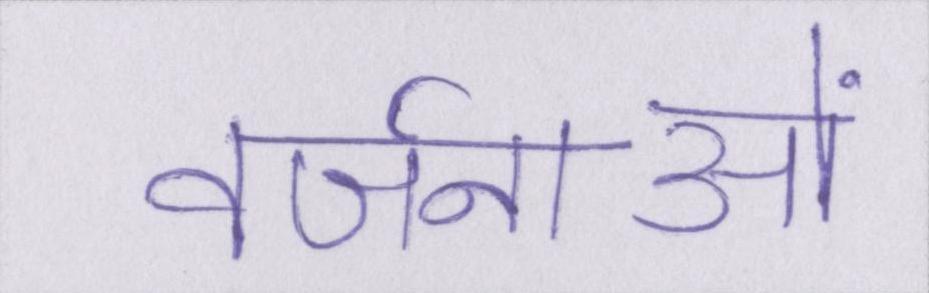 वर्जनाओं